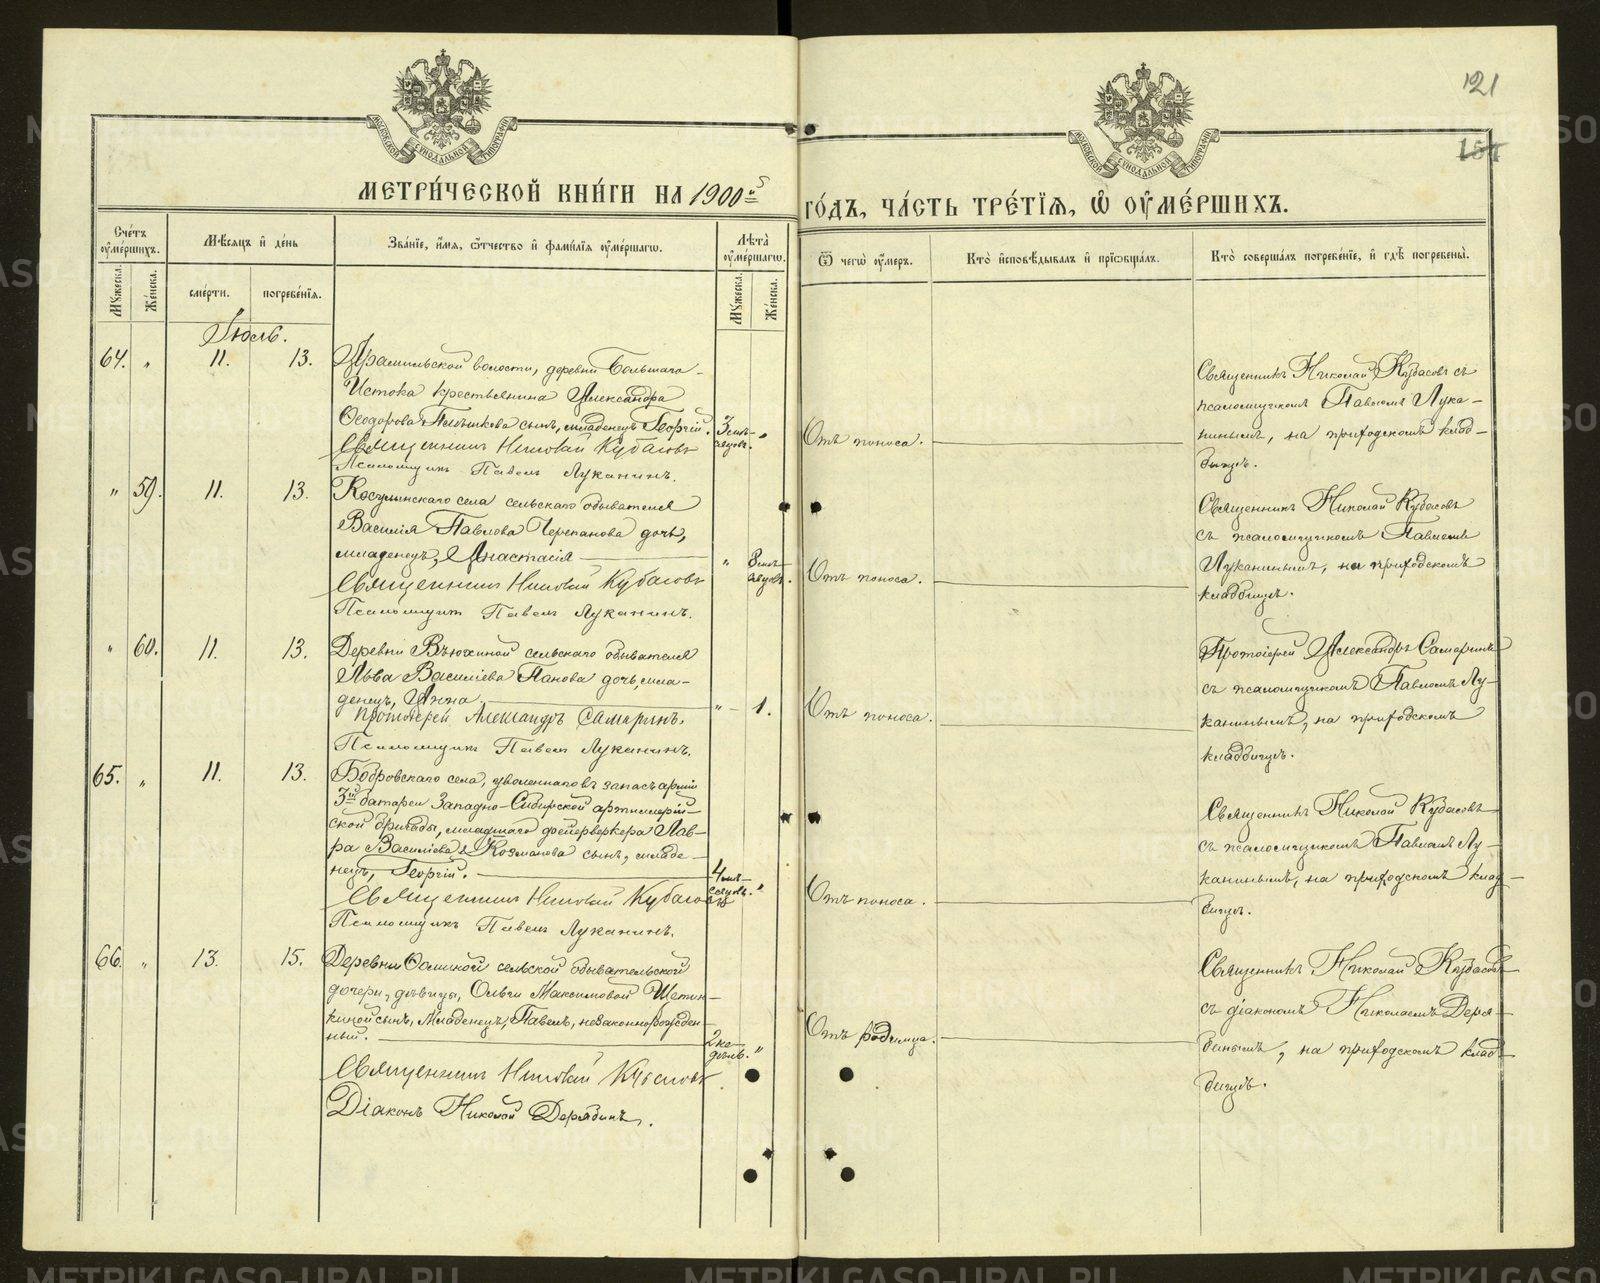 121
МОСКОВСКОЙ СУНОДАЛЬНОЙ ТИПОГРАФІИ
МОСКОВСКОЙ СУНОДАЛЬНОЙ ТИПОГРАФІИ
МЕТРИ́ЧЕСКОЙ КНИ́ГИ НА 1900й
ГО́ДЪ, ЧА́СТЬ ТРЕ́ТІѦ, Ѽ ОУ҆МЕ́РШИХЪ.
Сче́тъ оу҆ме́ршихъ.
Мѣ́сѧцъ и҆ де́нь
Зва́нїе, и҆́мѧ, ѻ҆́тчество и҆ фами́лїѧ оу҆ме́ршагѡ.
Лѣта̀ оу҆ме́ршагѡ.
Ѿ чегѡ̀ оу҆́меръ.
Кто̀ и҆сповѣ́дывалъ и҆ прїѡбща́лъ.
Кто̀ соверша́лъ погребе́нїе, и҆ гдѣ̀ погребены̀.
Мꙋ́жеска.
Же́нска.
сме́рти.
погребе́нїѧ.
Мꙋ́жеска.
Же́нска.
Іюль.
64. " 11. 13. Арамильской волости, деревни Большаго
Истока крестьянина Александра
Ѳеодорова сынъ, младенецъ Георгій. 3 мѣ-
сяцовъ. "
Священникъ Николай Кубасовъ
Псаломщикъ Павелъ Луканинъ.
Отъ поноса.
Священникъ Николай Кубасовъ съ
псаломщикомъ Павломъ Лука-
нинымъ, на приходскомъ клад-
бищѣ.
" 59. 11. 13. Косулинскаго села сельскаго обывателя
Василія Павлова Черепанова дочь,
младенецъ, Анастасія " 8 мѣ-
сяцовъ.
Священникъ Николай Кубасовъ
Псаломщикъ Павелъ Луканинъ.
Отъ поноса.
Священникъ Николай Кубасовъ
съ псаломщикомъ Павломъ
Луканинымъ, на приходскомъ
кладбищѣ.
" 60. 11. 13. Деревни Вьюхиной сельскаго обывателя
Льва Василіева Панова дочь, мла-
денецъ, Анна " 1.
Протоіерей Александръ Самаринъ.
Псаломщикъ Павелъ Луканинъ.
Отъ поноса.
Протоіерей Александръ Самаринъ
съ псаломщикомъ Павломъ Лу-
канинымъ, на приходскомъ
кладбищѣ.
65. " 11. 13. Бобровскаго села, уволеннаго въ запасъ арміи
3й батареи Западно-Сибирской артиллерій-
ской бригады, младшаго фейерверкера Лав-
ра Василіева Козманова сынъ, младе-
нецъ, Георгій. 4 мѣ-
сяцовъ. "
Священникъ Николай Кубасовъ
Псаломщикъ Павелъ Луканинъ.
Отъ поноса.
Священникъ Николай Кубасовъ
съ псаломщикомъ Павломъ Лу-
канинымъ, на приходскомъ клад-
бищѣ.
66. " 13. 15. Деревни сельской обывательской
дочери, дѣвицы, Ольги Максимовой Щетин-
киной сынъ, младенецъ, Павелъ, незаконнорожден-
ный. 2 не-
дѣль. "
Священникъ Николай Кубасовъ
Діаконъ Николай Дерябинъ.
Отъ родимца.
Священникъ Николай Кубасовъ
съ діакономъ Николаемъ Деря-
бинымъ, на приходскомъ клад-
бищѣ.
METRIKI.GASO-URAL.RU